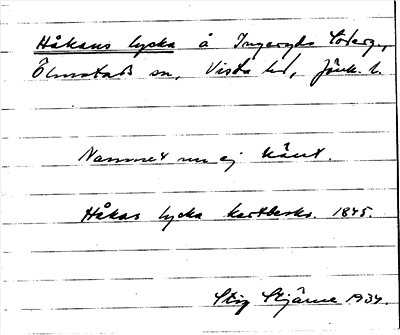 Håkans lycka å Ingeryds Söderg.,
Ölmstads sn, Vista hd, Jönk. l.
Namnet nu ej känt.
Håkas lycka kartbeskr. 1845.
Stig Stjärne 1934.